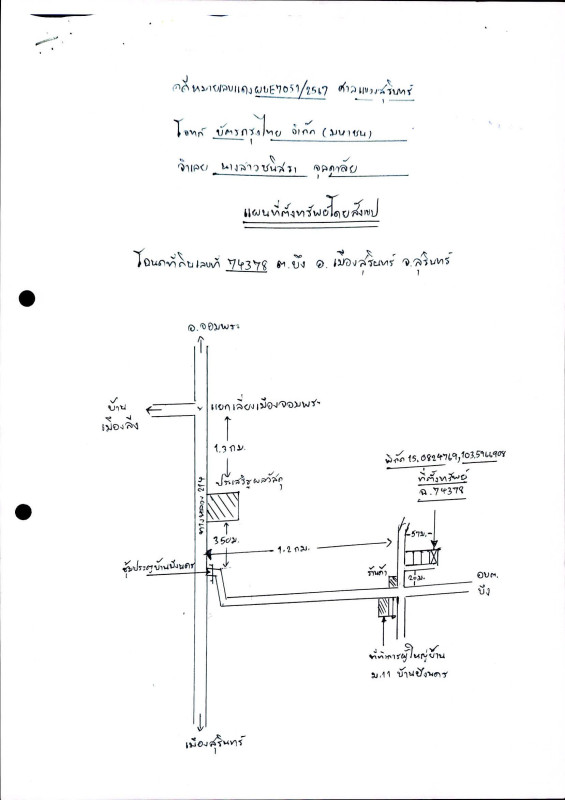 คดีหมายเลขแดงผบE7051/2567 ศาลแขวงสุรินทร์
โจทก์ บัตรกรุงไทย จำกัด (มหาชน)
จำเลย นางสาวชนิสรา จุลดาลัย
แผนที่ตั้งทรัพย์โดยสังเขป
โฉนดที่ดินเลขที่ 74378 ต.บึง อ.เมืองสุรินทร์ จ.สุรินทร์
อ.จอมพระ
บ้าน
เมืองลีง
แยกเลี่ยงเมืองจอมพระ
1.3 กม.
พิกัด 15.0824769,103.5
ที่ตั้งทรัพย์
ฉ.74378
ทางหลวง 214
350ม.
1.2 กม.
57ม.
ซุ้มประตูบ้านปังนคร
ร้านค้า
2ม.
อบต.
บึง
ที่ทำการผู้ใหญ่บ้าน
ม.11 บ้านปังนคร
เมืองสุรินทร์